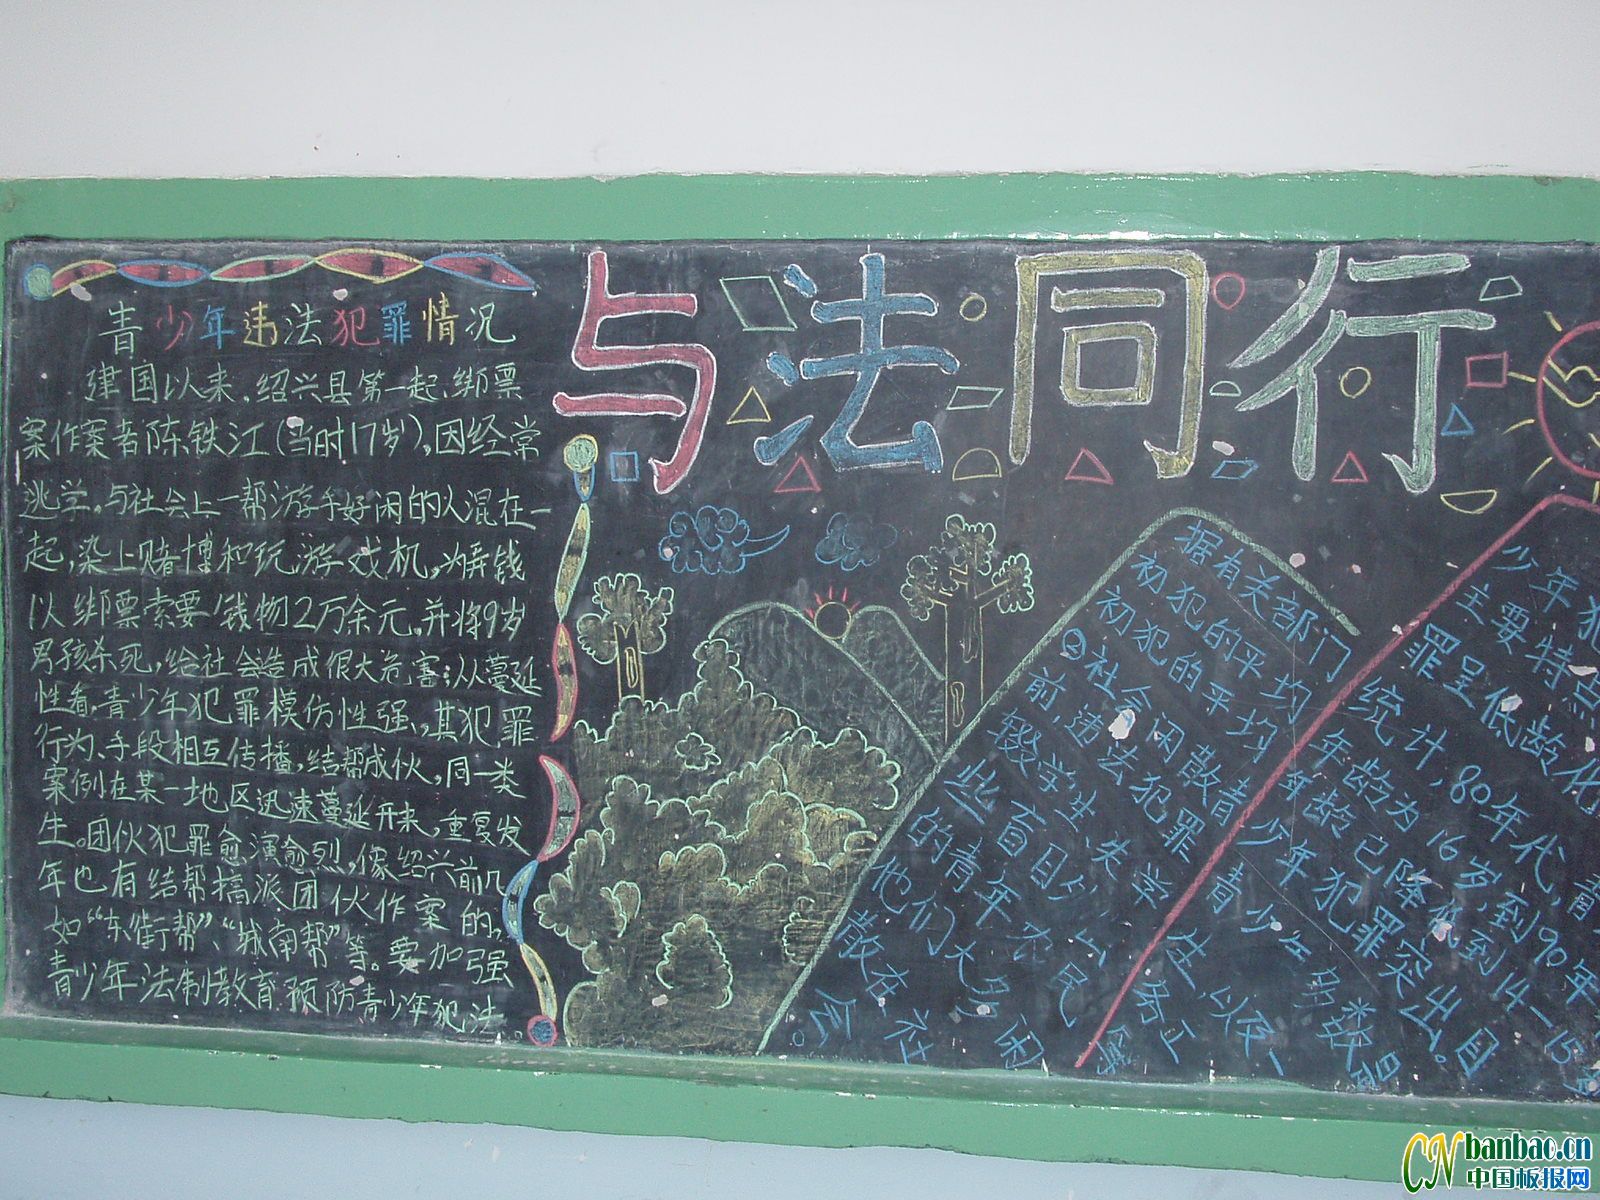 与法同行
青少年违法犯罪情况
建国以来,绍兴县第一起绑票
案作案者陈铁江(当时17岁),因经常
逃学。与社会上一帮游手好闲的人混在一
起,染上赌博和玩游戏机,为弄钱
以绑票索要钱物2万余元。并将9岁
男孩杀死,给社会造成很大危害;从蔓延
性看,青少年犯罪模仿性强,其犯罪
行为、手段相互传播,结帮成伙,同一类
案例在某一地区迅速蔓延开来,重复发
生。团伙犯罪愈演愈烈,像绍兴前几
年也有结帮搞派团伙作案的,
如“东街帮”、“城南帮”等。要加强
青少年法制教育,预防青少年犯法。
少年犯
主要特点
罪呈低龄化
据有关部门统计,80年代,青
初犯的平均年龄为16岁,到90年
初犯的平均年龄已降低到14-15
②社会闲散青少年犯罪突出。目
前,违法犯罪青少年多数是
辍学生、失学生,以及一
些盲目
的青年农民
他们大多闲
散在社
会。
banbao.cn
中国板报网